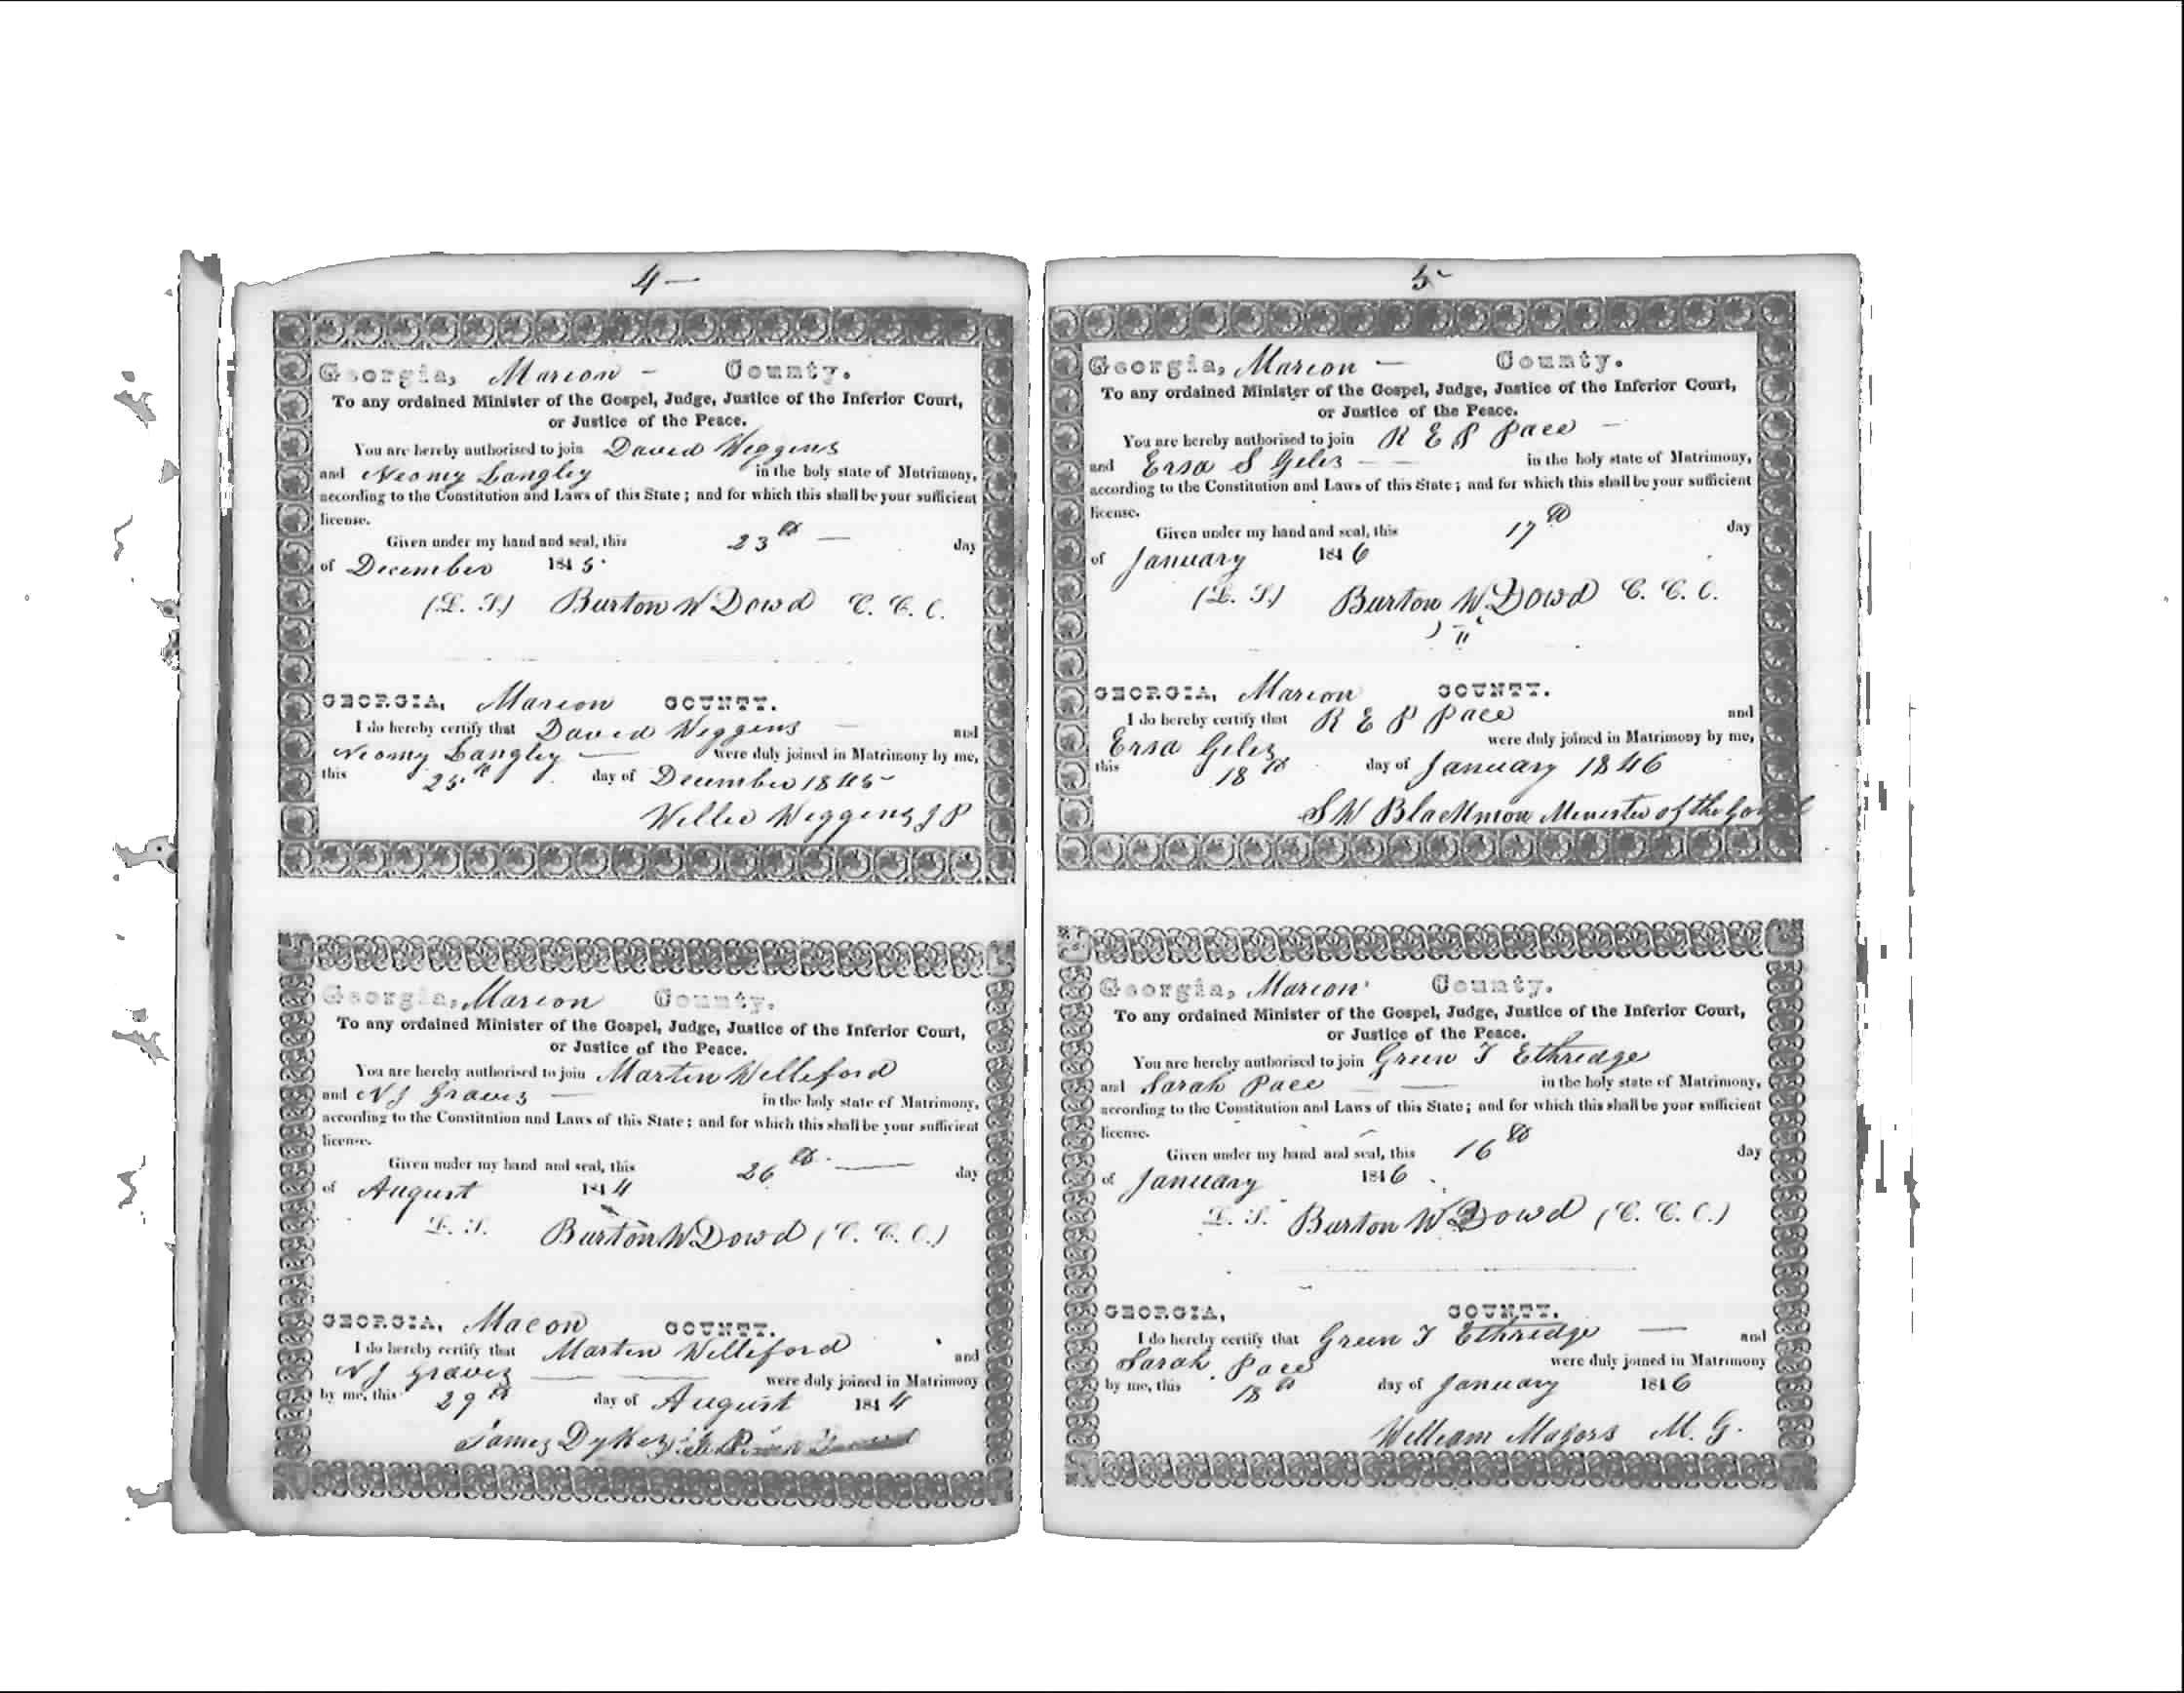 4—
Georgia, Marion – County.
To any ordained Minister of the Gospel, Judge, Justice of the Inferior Court,
or Justice of the Peace.
You are hereby authorised to join David Wiggins
and Neomy Langley in the holy state of Matrimony,
according to the Constitution and Laws of this State; and for which this shall be your sufficient
license.
Given under my hand and seal, this 23th — day
of December 1845.
(L. S.) Burton W Dowd C. C. C.
GEORGIA, Marion COUNTY.
I do hereby certify that David Wiggins — and
Neomy Langley — were duly joined in Matrimony by me,
this 25th day of December 1845
Willie Wiggins J P
Georgia, Marion County.
To any ordained Minister of the Gospel, Judge, Justice of the Inferior Court,
or Justice of the Peace.
You are hereby authorised to join Martin Williford
and N J Graves — in the holy state of Matrimony,
according to the Constitution and Laws of this State; and for which this shall be your sufficient
license.
Given under my hand and seal, this 26th. — day
of August 1844
L. S. Burton W Dowd (C. C. C.)
GEORGIA, Macon COUNTY.
I do hereby certify that Martin Williford and
N J Graves — — were duly joined in Matrimony
by me, this 29th day of August 1844
James Dykes
5
Georgia, Marion — County.
To any ordained Minister of the Gospel, Judge, Justice of the Inferior Court,
or Justice of the Peace.
You are hereby authorised to join R E P Pace —
and Ersa S Giles — — in the holy state of Matrimony,
according to the Constitution and Laws of this State; and for which this shall be your sufficient
license.
Given under my hand and seal, this 17th day
of January 1846
(L. S.) Burton W. Dowd C. C. C.
GEORGIA, Marion COUNTY.
I do hereby certify that R E P Pace and
Ersa Giles were duly joined in Matrimony by me,
this 18th day of January 1846
S W Blackmon Minister of the Gospel
Georgia, Marion County.
To any ordained Minister of the Gospel, Judge, Justice of the Inferior Court,
or Justice of the Peace.
You are hereby authorised to join Green T Ethridge
and Sarah Pace — in the holy state of Matrimony,
according to the Constitution and Laws of this State; and for which this shall be your sufficient
license.
Given under my hand and seal, this 16th day
of January 1846
L. S. Burton W Dowd (C. C. C.)
GEORGIA, COUNTY.
I do hereby certify that Green T Ethridge — and
Sarah Pace were duly joined in Matrimony
by me, this 18th day of January 1846
William Majors M. G.